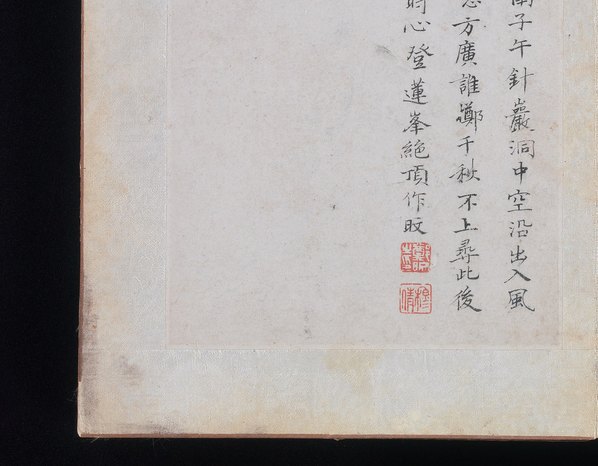 子午針巖洞中空沿出入風
方廣誰鄭千秋不上尋此後
心登蓮峯絕頂作
穆倩